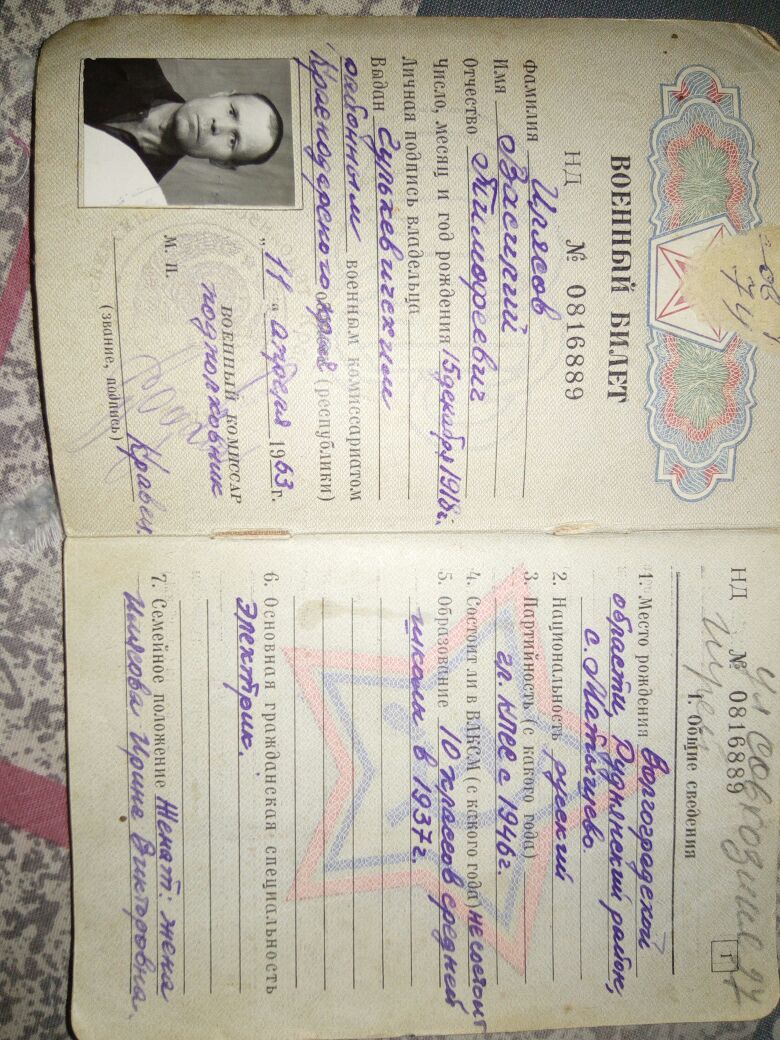 74
ВОЕННЫЙ БИЛЕТ
НД № 0816889
Фамилия
Имя Василий
Отчество Тимофеевич
Число, месяц и год рождения 15 декабря 1918г.
Личная подпись владельца
Выдан Гулькевичским
районным военным комиссариатом
Краснодарского края (республики)
„11“ апреля 1963 г.
ВОЕННЫЙ КОМИССАР
М. П. подполковник
(звание, подпись)
НД № 0816889
1
1. Общие сведения
1. Место рождения Волгоградской
области, Руднянский район,
с. Матышево.
2. Национальность русский
3. Партийность (с какого года)
чл. КПСС с 1946г.
4. Состоит ли в ВЛКСМ (с какого года) не состоит
5. Образование 10 классов средней
школы в 1937г.
6. Основная гражданская специальность
Электрик.
7. Семейное положение Женат: жена
Ирина Викторовна.